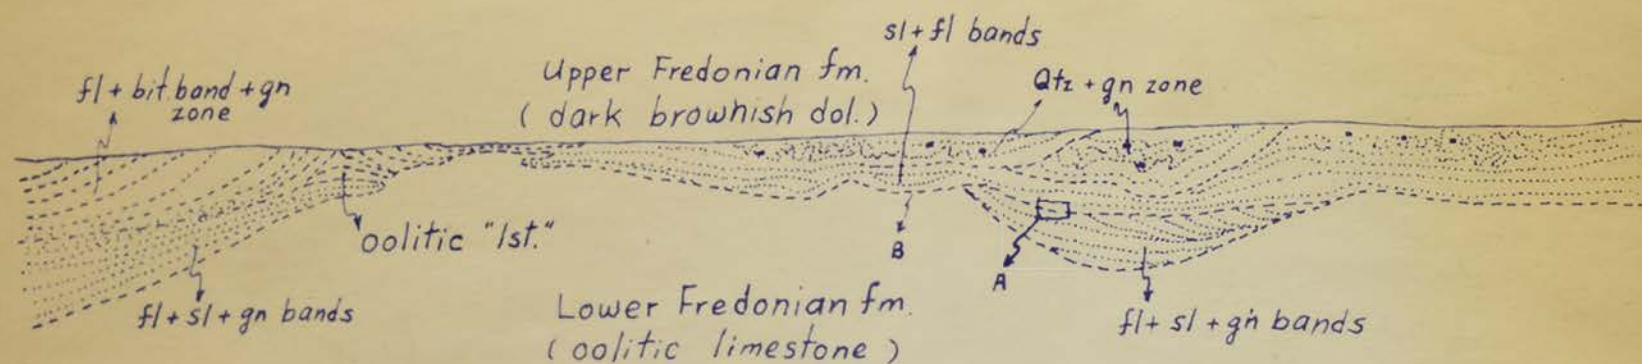 sl + fl bands
Upper Fredonian fm.
( dark brownish dol.)
fl + bit. band + gn
zone
Qtz + gn zone
oolitic "lst."
B
A
fl + sl + gn bands
Lower Fredonian fm.
( oolitic limestone )
fl + sl + gn bands